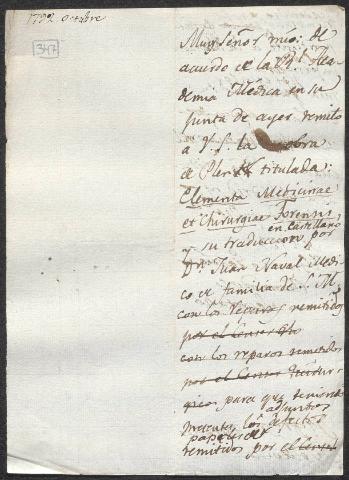 1792 octubre
347
Muy señor mio: de
acuerdo de la Rl. Aca
demia Médica en su
junta de ayer remito
a V.S. la obra
de Plenk titulada:
Elementa Medicinae
et Chirurgiae Forensis
en castellano
y su traduccion por
Dn. Juan Naval Medi
co de familia de S. M,
con los reparos remitidos
por el
con los reparos remitidos
por el Censor
para que teniendo
adjuntos
presentes los
papeles
remitidos por el Censor